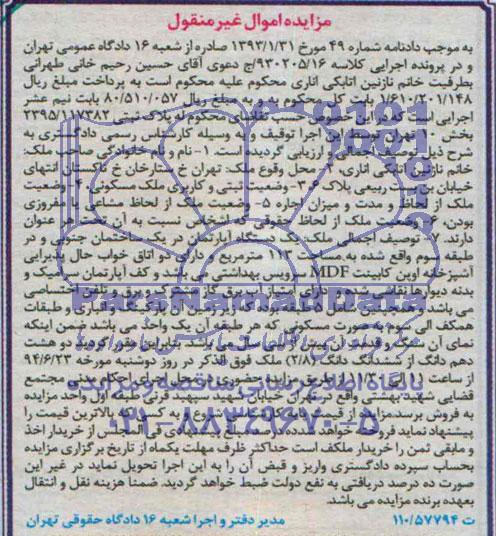 مزایده اموال غیر منقول
به موجب دادنامه شماره ۴۹ مورخ ۱۳۹۳/۱/۳۱ صادره از شعبه ۱۶ دادگاه عمومی تهران
و در پرونده اجرایی کلاسه ۹۳۰۲۰۵/۱۶/ج دعوی آقای حسین رحیم خانی طهرانی
بطرفیت خانم نازنین اتابکی اناری محکوم علیه محکوم است به پرداخت مبلغ ریال
۱/۶۱۰/۲۰۱/۱۴۸ بابت کل محکوم به و به مبلغ ریال ۸۰/۵۱۰/۰۵۷ بابت نیم عشر
اجرایی است که در این خصوص حسب تقاضای محکوم له پلاک ثبتی ۲۳۹۵/۱۱۷۳۸۲
بخش ۱۰ تهران توسط این اجرا توقیف و به وسیله کارشناس رسمی دادگستری به
شرح ذیل توصیف اجمالی و ارزیابی گردیده است. ۱- نام و نام خانوادگی صاحب ملک:
خانم نازنین اتابکی اناری، ۲- محل وقوع ملک: تهران خ ستارخان خ تاکستان انتهای
خیابان بن بست ربیعی پلاک ۶، ۳- وضعیت ثبتی و کاربری ملک مسکونی، ۴- وضعیت
ملک از لحاظ و مدت و میزان اجاره ۵- وضعیت ملک از لحاظ مشاعی یا مفروزی
بودن، ۶- وضعیت ملک از لحاظ حقوقی که اشخاص نسبت به آن تحت هر عنوان
دارند. ۷- توصیف اجمالی ملک: یک دستگاه آپارتمان در یک ساختمان جنوبی و در
طبقه سوم واقع شده به مساحت مترمربع و دارای دو اتاق خواب حال پذیرایی
آشپزخانه اوپن کابینت MDF سرویس بهداشتی می باشد و کف آپارتمان سرامیک و
بدنه دیوارها نقاشی شده و دارای امتیاز آب برق گاز مشترک و برق و تلفن اختصاصی
می باشد و همچنین شامل ۵ طبقه بوده که زیر زمین آن پارکینگ و انباری و طبقات
همکف الی سوم به صورت مسکونی که هر طبقه آن یک واحد می باشد ضمن اینکه
نمای آن سنگ و قدمت آن بیش از سال می باشد. بنابراین مقرر گردید دو هشت
دهم دانگ از ششدانگ دانگ (۲/۸) ملک فوق الذکر در روز دوشنبه مورخه ۹۴/۶/۲۳
از ساعت ۱۱ الی ۱۱/۳۰ از طریق مزایده حضوری در محل اجرای احکام مدنی مجتمع
قضایی شهید بهشتی واقع در تهران خیابان شهید سپهبد قرنی طبقه اول واحد مزایده
به فروش برسد مزایده از قیمت پایه کارشناسی شروع و به کسی که بالاترین قیمت را
پیشنهاد نماید فروخته خواهد شد ده درصد مبلغ پیشنهادی فی المجلس از خریدار اخذ
و مابقی ثمن را خریدار ملکف است حداکثر ظرف مهلت یکماه از تاریخ برگزاری مزایده
بحساب سپرده دادگستری واریز و قبض آن را به این اجرا تحویل نماید در غیر این
صورت ده درصد دریافتی به نفع دولت ضبط خواهد گردید. ضمنا هزینه نقل و انتقال
بعهده برنده مزایده می باشد.
ت ۱۱۰/۵۷۷۹۴ مدیر دفتر و اجرا شعبه ۱۶ دادگاه حقوقی تهران
ParsNamadData
پایگاه اطلاع رسانی مناقصه و مزایده
۰۲۱-۸۸۳۴۹۶۷۰-۵